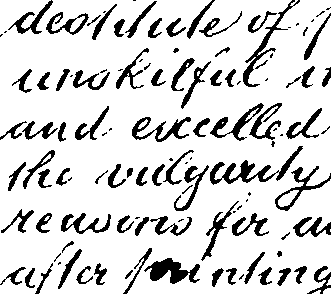 destitute of
unskilful
and excelled
the vulgarity
reasons for
after printing